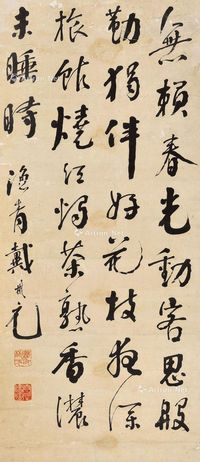 無賴春光動客思殷
勤獨伴好花枝夜深
旅館燒紅燭茶熟香濃
未睡時 漁青戴彬元